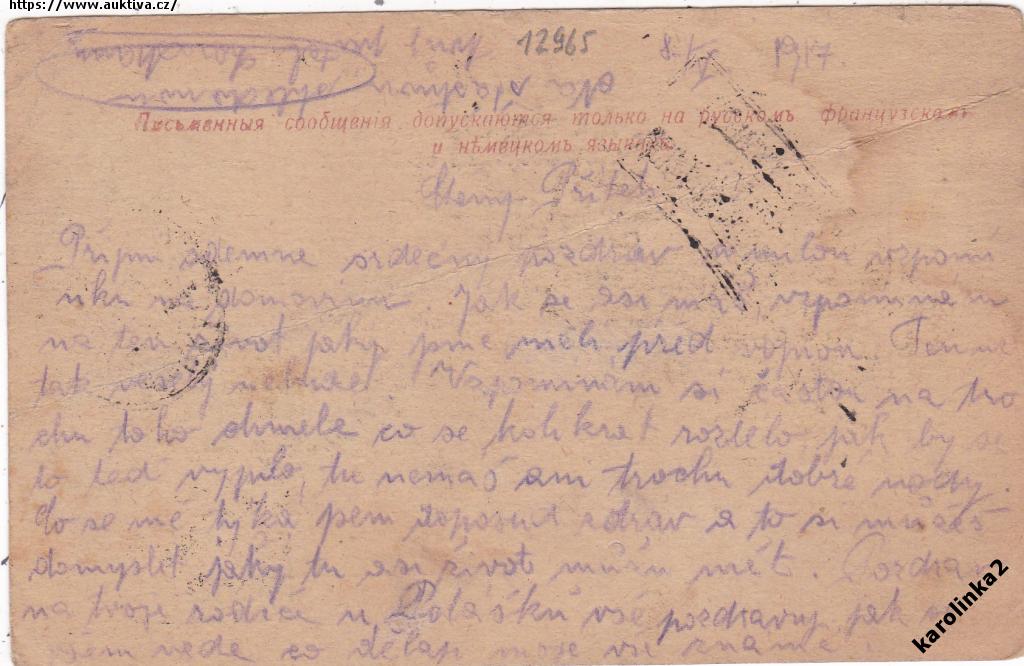 https://www.auktiva.cz/
12965
8. 1917.
Письменныя сообщенія допускаются только на русскомъ французскомъ
и нѣмецкомъ языкахъ.
Příteli
srdečný pozdrav milou vzpomí
nku na domovinu. Jak se asi máš, vzpomínám
na ten život jaký jsme měli před vojnou. Ten
tak veselý nebude. Vzpomínám si často na tro
chu toho chmele co se kolikrát rozlilo, jak by se
to teď vypilo, tu nemáš ani trochu dobré vody.
Co se mé týká jsem doposud zdráv a to si můžeš
domyslet jaký tu asi život můžu mět. Pozdrav
na tvoje rodiče u Polášků vše pozdravuj jak
vede co dělají
karolinka2